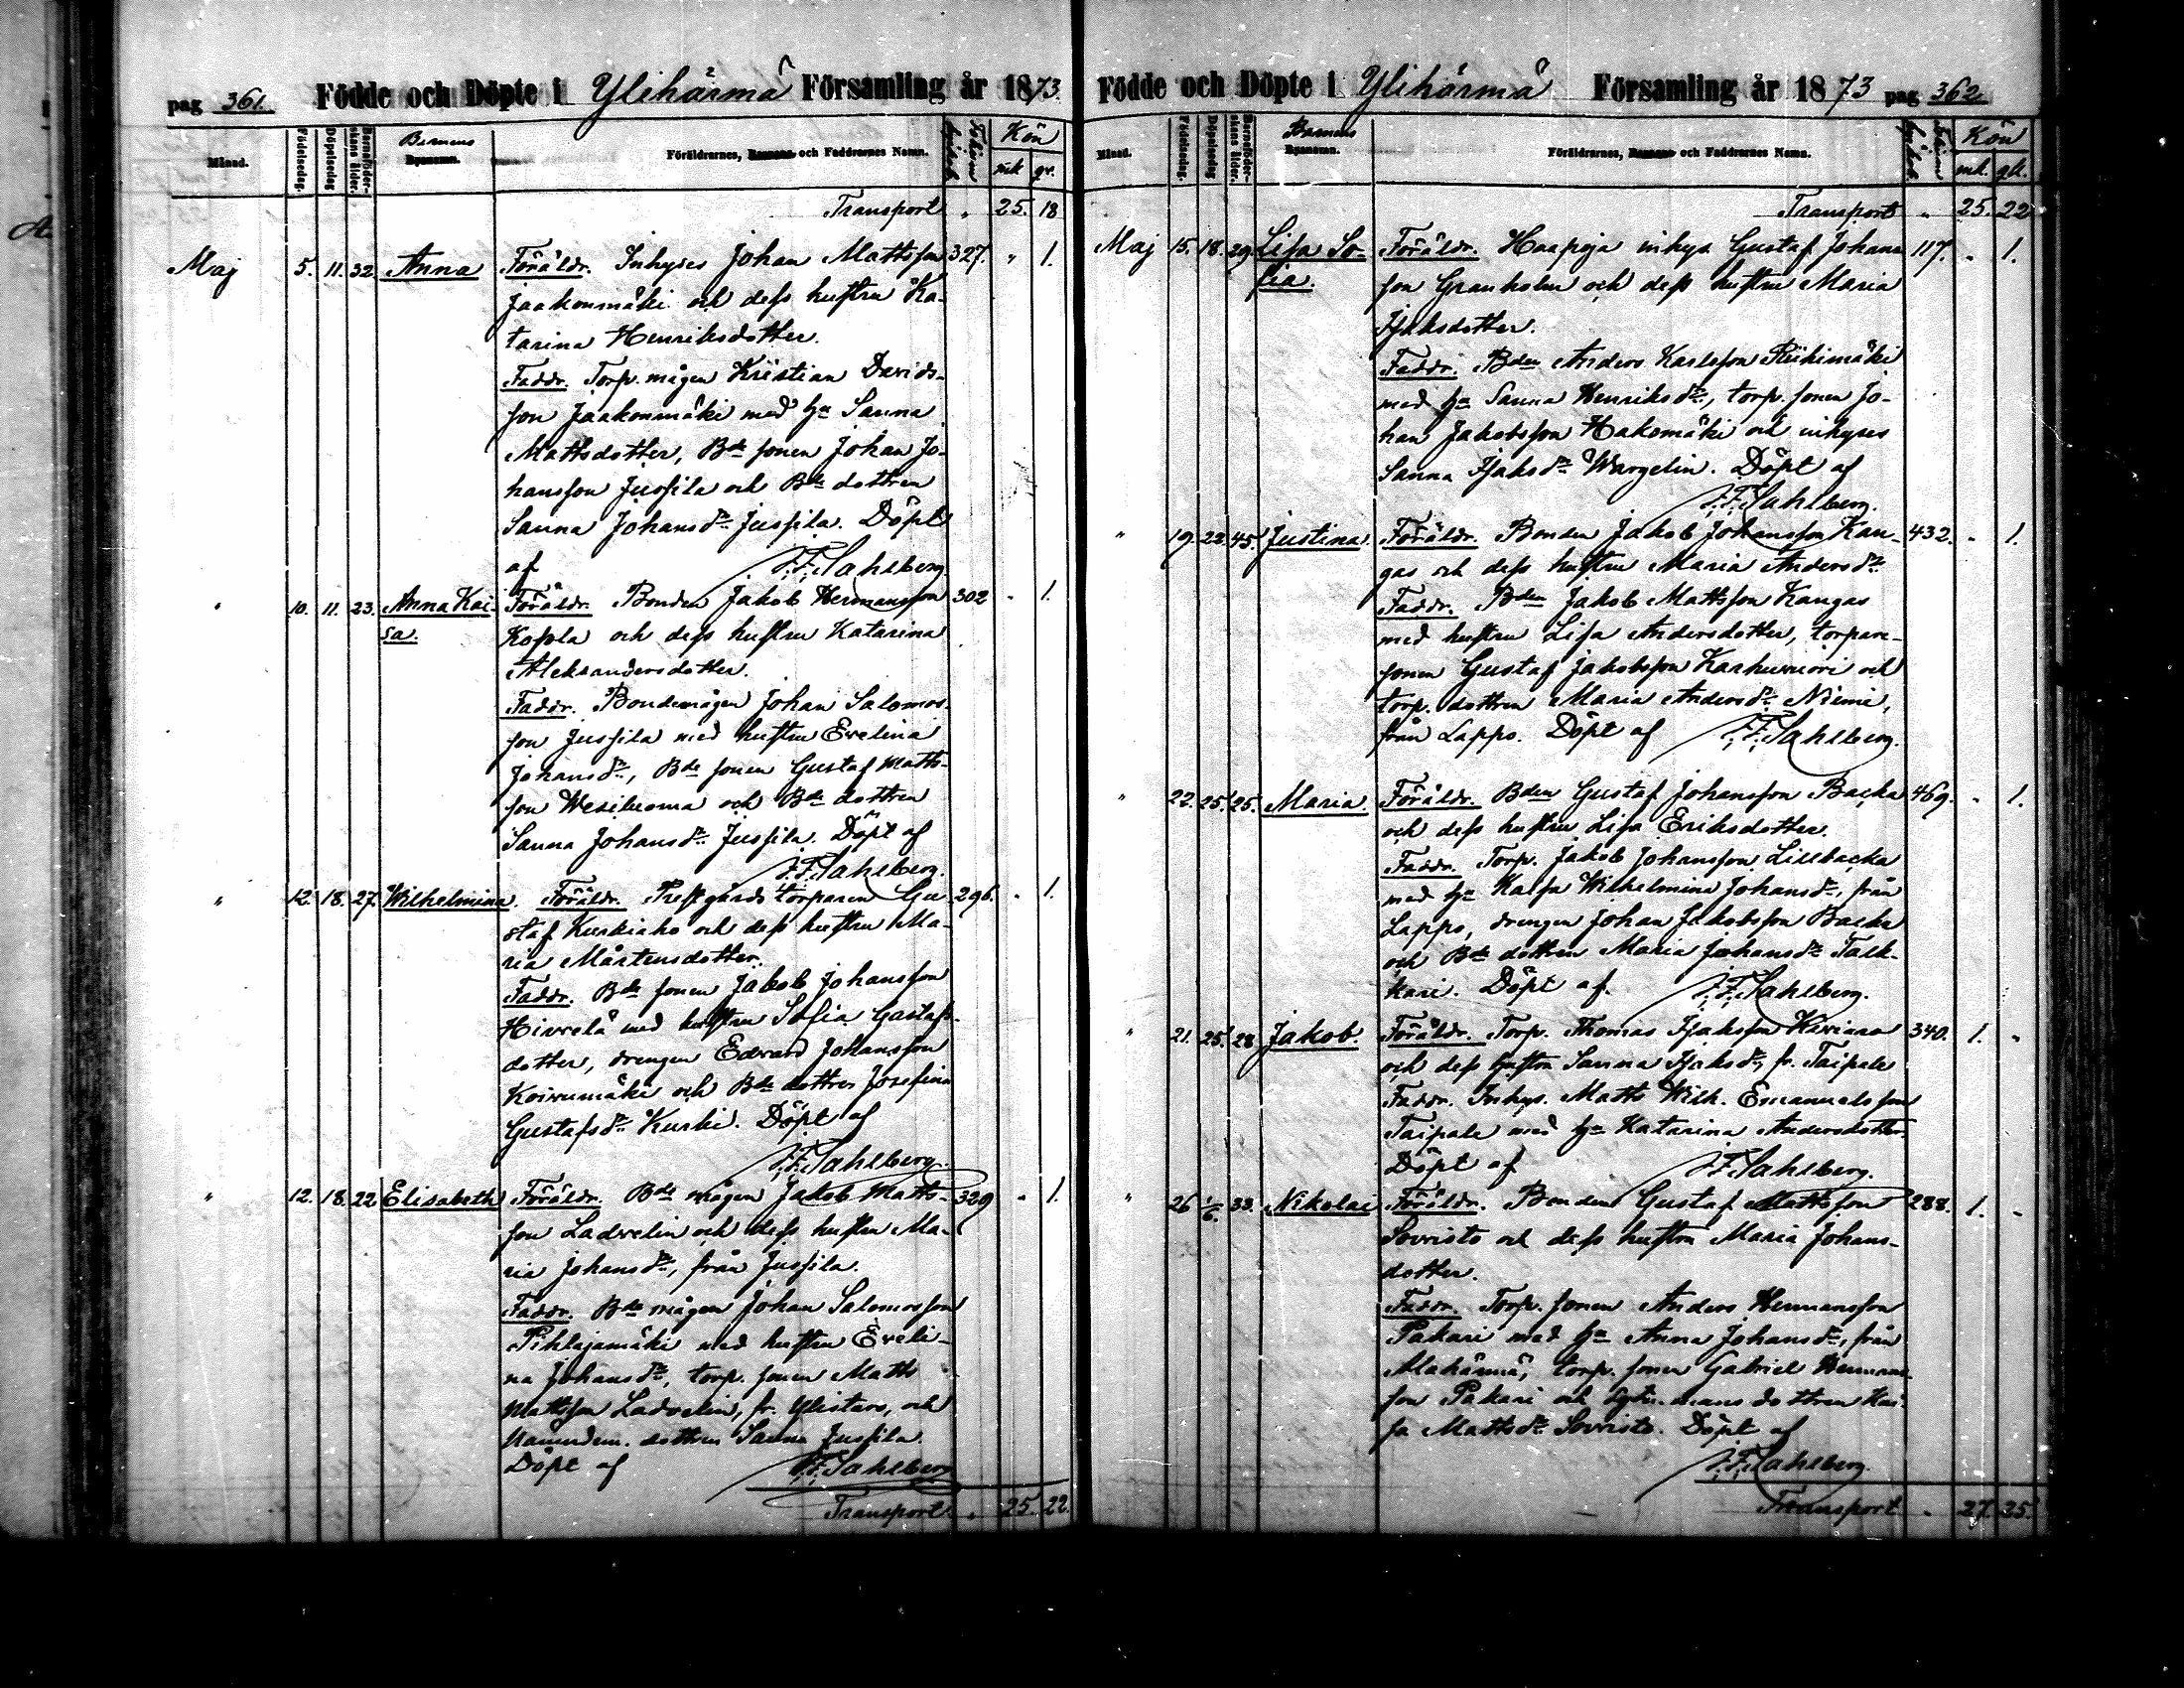 pag 361. Födde och Döpte i Ylihärmä Församling år 1873.
Månad. Födelsedag. Döpelsedag Barnaföderskans ålder. Barnens Föräldrarnes, Barnens och Faddrarnes Namn. Kön
mk qv.
Transport " 25. 18
Maj 5. 11. 32. Anna Föräldr. Inhyses Johan Mattsson 327. " 1.
Jaakonmäki och dess hustru Ka-
tarina Henriksdotter.
Faddr. Torp. mågen Kristian Davids-
son Jaakonmäki med h:u Sanna
Mattsdotter, Bde sonen Johan Jo-
hansson Jussila och Bde dottren
Sanna Johansdr. Jussila. Döpt
af J.F. Sahlberg.
" 10. 11. 23. Anna Kai- Föräldr. Bonden Jakob Hermansson 302 " 1.
sa. Kosola och dess hustru Katarina
Aleksandersdotter.
Faddr. Bondemågen Johan Salomos-
son Jussila med hustru Evelina
Johansdr, Bde sonen Gustaf Matts-
son Wesiluoma och Bde dottren
Sanna Johansdr. Jussila. Döpt af
J.F. Sahlberg.
" 12. 18. 27. Wilhelmina. Föräldr. Prestgårds torparen Gu- 296. " 1.
staf Kurkiaho och dess hustru Ma-
ria Mårtensdotter.
Faddr. Bde sonen Jakob Johansson
Hirvelä med hustru Sofia Gustafs-
dotter, drengen Edvard Johansson
Koivumäki och Bde dottren Josefina
Gustafsdr. Kurki. Döpt af
J.F. Sahlberg.
" 12. 18. 22 Elisabeth Föräldr. Bde mågen Jakob Matts- 329 " 1.
son Ladvelin och dess hustru Ma-
ria Johansdr, från Jussila.
Faddr. Bde mågen Johan Salomosson
Pihlajamäki med hustru Eveli-
na Johansdr, torp. sonen Matts
Mattsson Ladvelin, fr. Ylistaro, och
Nämndem. dottren Sanna Jussila.
Döpt af J.F. Sahlberg
Transport " 25. 22.
Födde och Döpte i Ylihärmä Församling år 1873 pag 362
Månad. Födelsedag. Döpelsedag Barnaföderskans ålder. Barnens Föräldrarnes, Barnens och Faddrarnes Namn. Kön
mk. qk.
Transport " 25. 22
Maj 15. 18. 29. Lisa So- Föräldr. Haapoja inhys. Gustaf Johans- 117. " 1.
fia. son Granholm och dess hustru Maria
Isaksdotter.
Faddr. Bden Anders Karlsson Riihimäki
med h:u Sanna Henriksdr, torp. sonen Jo-
han Jakobsson Hakomäki och inhyses
Sanna Isaksdr Wargelin. Döpt af
J.F. Sahlberg.
" 19. 22. 45. Justina. Föräldr. Bonden Jakob Johansson Kan- 432. " 1.
gas och dess hustru Maria Andersdr.
Faddr. Bden Jakob Mattsson Kangas
med hustru Lisa Andersdotter, torpare-
sonen Gustaf Jakobsson Karhuvuori och
torp. dottren Maria Andersdr. Niemi,
från Lappo. Döpt af J.F. Sahlberg.
" 22. 25. 25. Maria. Föräldr. Bden Gustaf Johansson Backa 469. " 1.
och dess hustru Lisa Eriksdotter.
Faddr. Torp. Jakob Johansson Lillbacka
med h:u Kaisa Wilhelmina Johansdr, från
Lappo, drengen Johan Jakobsson Backa
och Bde dottren Maria Johansdr Talk-
kari. Döpt af. J.F. Sahlberg.
" 21. 25. 28 Jakob. Föräldr. Torp. Thomas Isaksson Kivioro 340. 1. "
och dess hustru Sanna Isaksdr, fr. Taipale
Faddr. Inhys. Matts Wilh. Emanuelsson
Taipale med h:u Katarina Andersdotter.
Döpt af J.F. Sahlberg.
" 26 1/6. 33. Nikolai Föräldr. Bonden Gustaf Mattsson 288. 1. "
Sorvisto och dess hustru Maria Johans-
dotter.
Faddr. Torp. sonen Anders Hermansson
Pakari med h:u Anna Johansdr, från
Alahärmä, torp. sonen Gabriel Hermans-
son Pakari och dottren Kai-
sa Mattsdr Sorvisto. Döpt af
J.F. Sahlberg.
Transport " 27. 25.